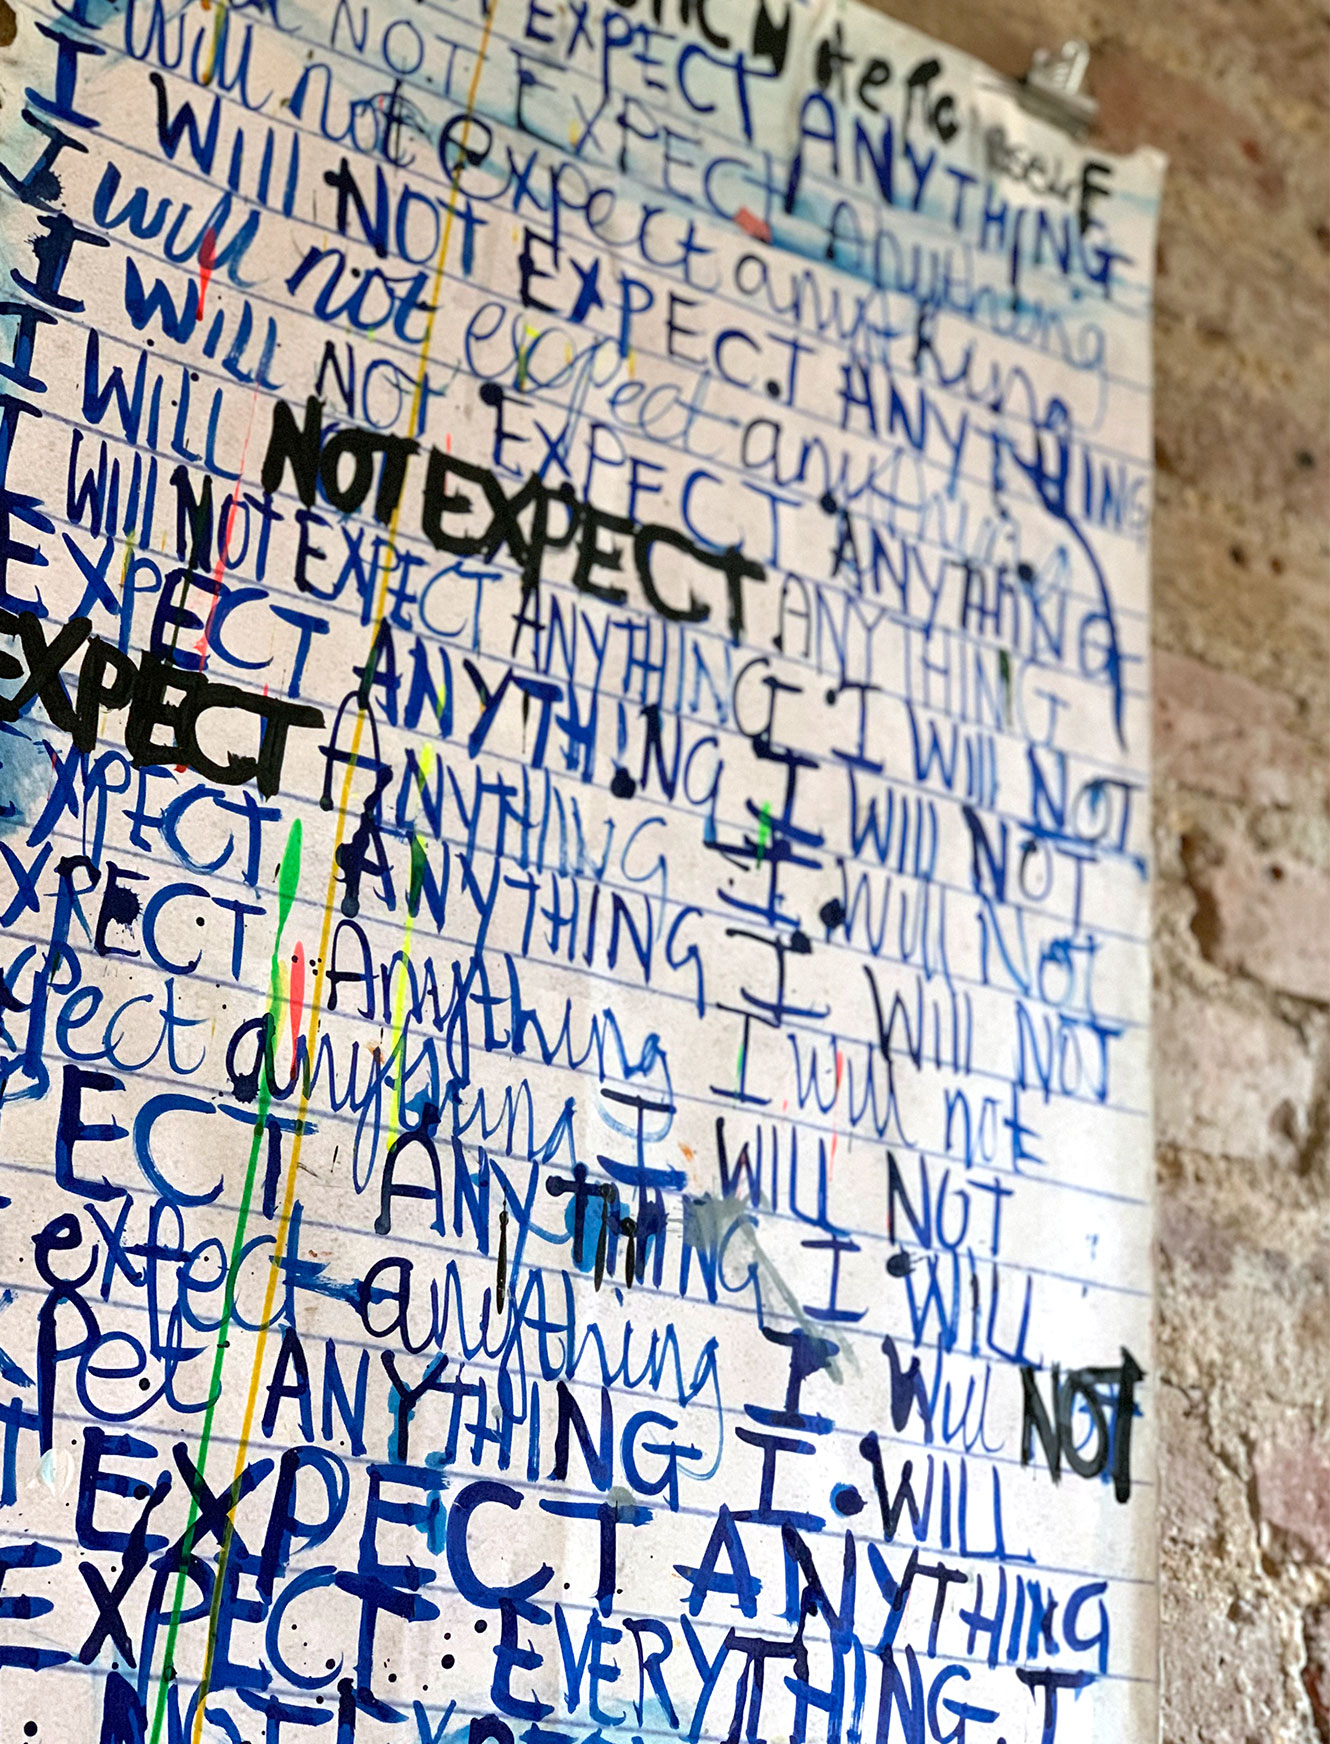 EXPECT ANYTHING
NOT EXPECT Anything
I will not expect anything
I WIll NOT EXPECT ANYTHING
I will not expect anything
I WILL NOT EXPECT ANYTHING
I WILL NOT EXPECT ANYTHING
I WIll NOT EXPECT ANYTHING I WIll NOT
EXPECT ANYTHING I WIll NOT
EXPECT ANYTHING I Will Not
EXPECT ANYTHING I Will NOT
XPECT Anything I will not
xpect anything I WILL NOT
PECT ANYTHING I WILL
expect anything I Will NOT
Pect ANYTHING I WILL
EXPECT ANYTHING
EXPECT EVERYTHING. I
NOT EXPECT